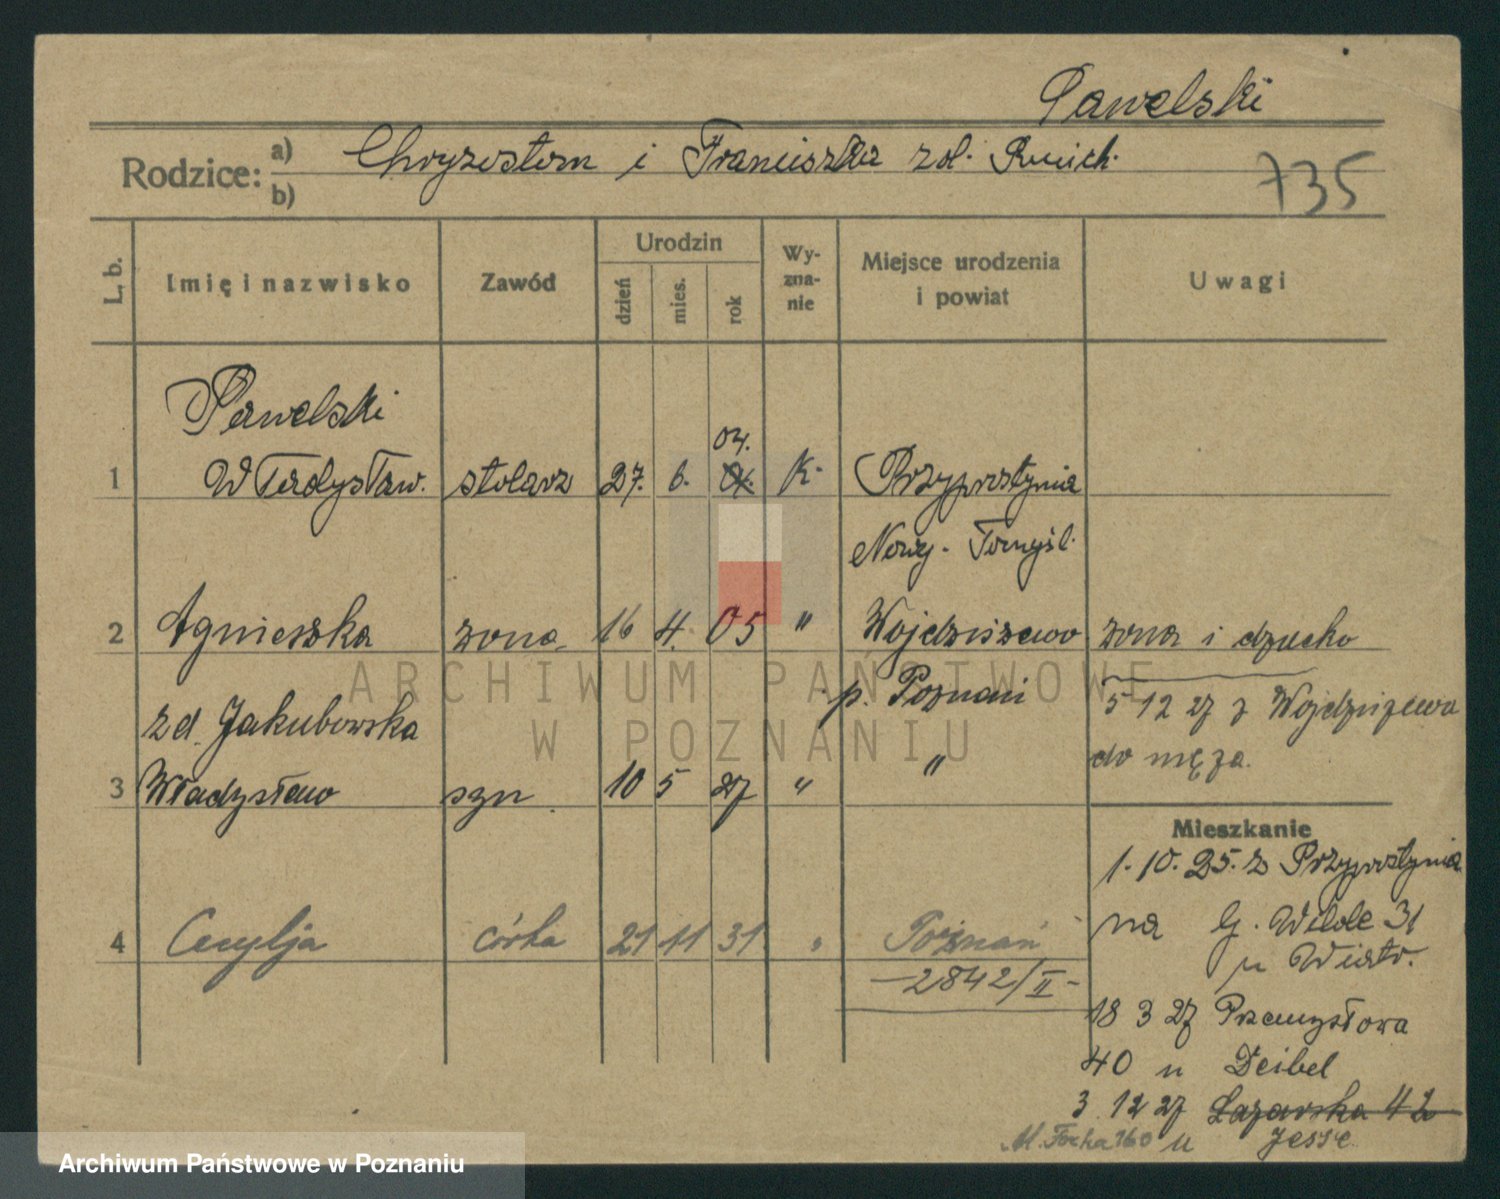 Pawelski
Rodzice: a) Chryzostom i Franciszka zd.
b)
735
L. b.
Imię i nazwisko
Zawód
Urodzin
dzień
mies.
rok
Wy-
zna-
nie
Miejsce urodzenia
i powiat
Uwagi
Pawelski
04.
1 Władysław. stolarz 27. 6. 04. K. Przyprostynia
Nowy-Tomyśl.
2 Agnieszka żona 16 4. 05 " Wojdziszewo żona i dziecko
p. Poznań 5 12 27 z Wojdziszewa
zd. Jakubowska
do męża.
"
3 Władysław syn 10 5 27 "
Mieszkanie
1.10.25. z Przyprostynia
na G. Wilde 31
u Wiatr.
4 Cecylja córka 21 11 31 " Poznań
-2842/II-
18 3 27 Przemysłowa
40 u Deibel
3.12 27 Łazarska 42
M. Focha 160 u Jesse
ARCHIWUM PAŃSTWOWE
W POZNANIU
Archiwum Państwowe w Poznaniu